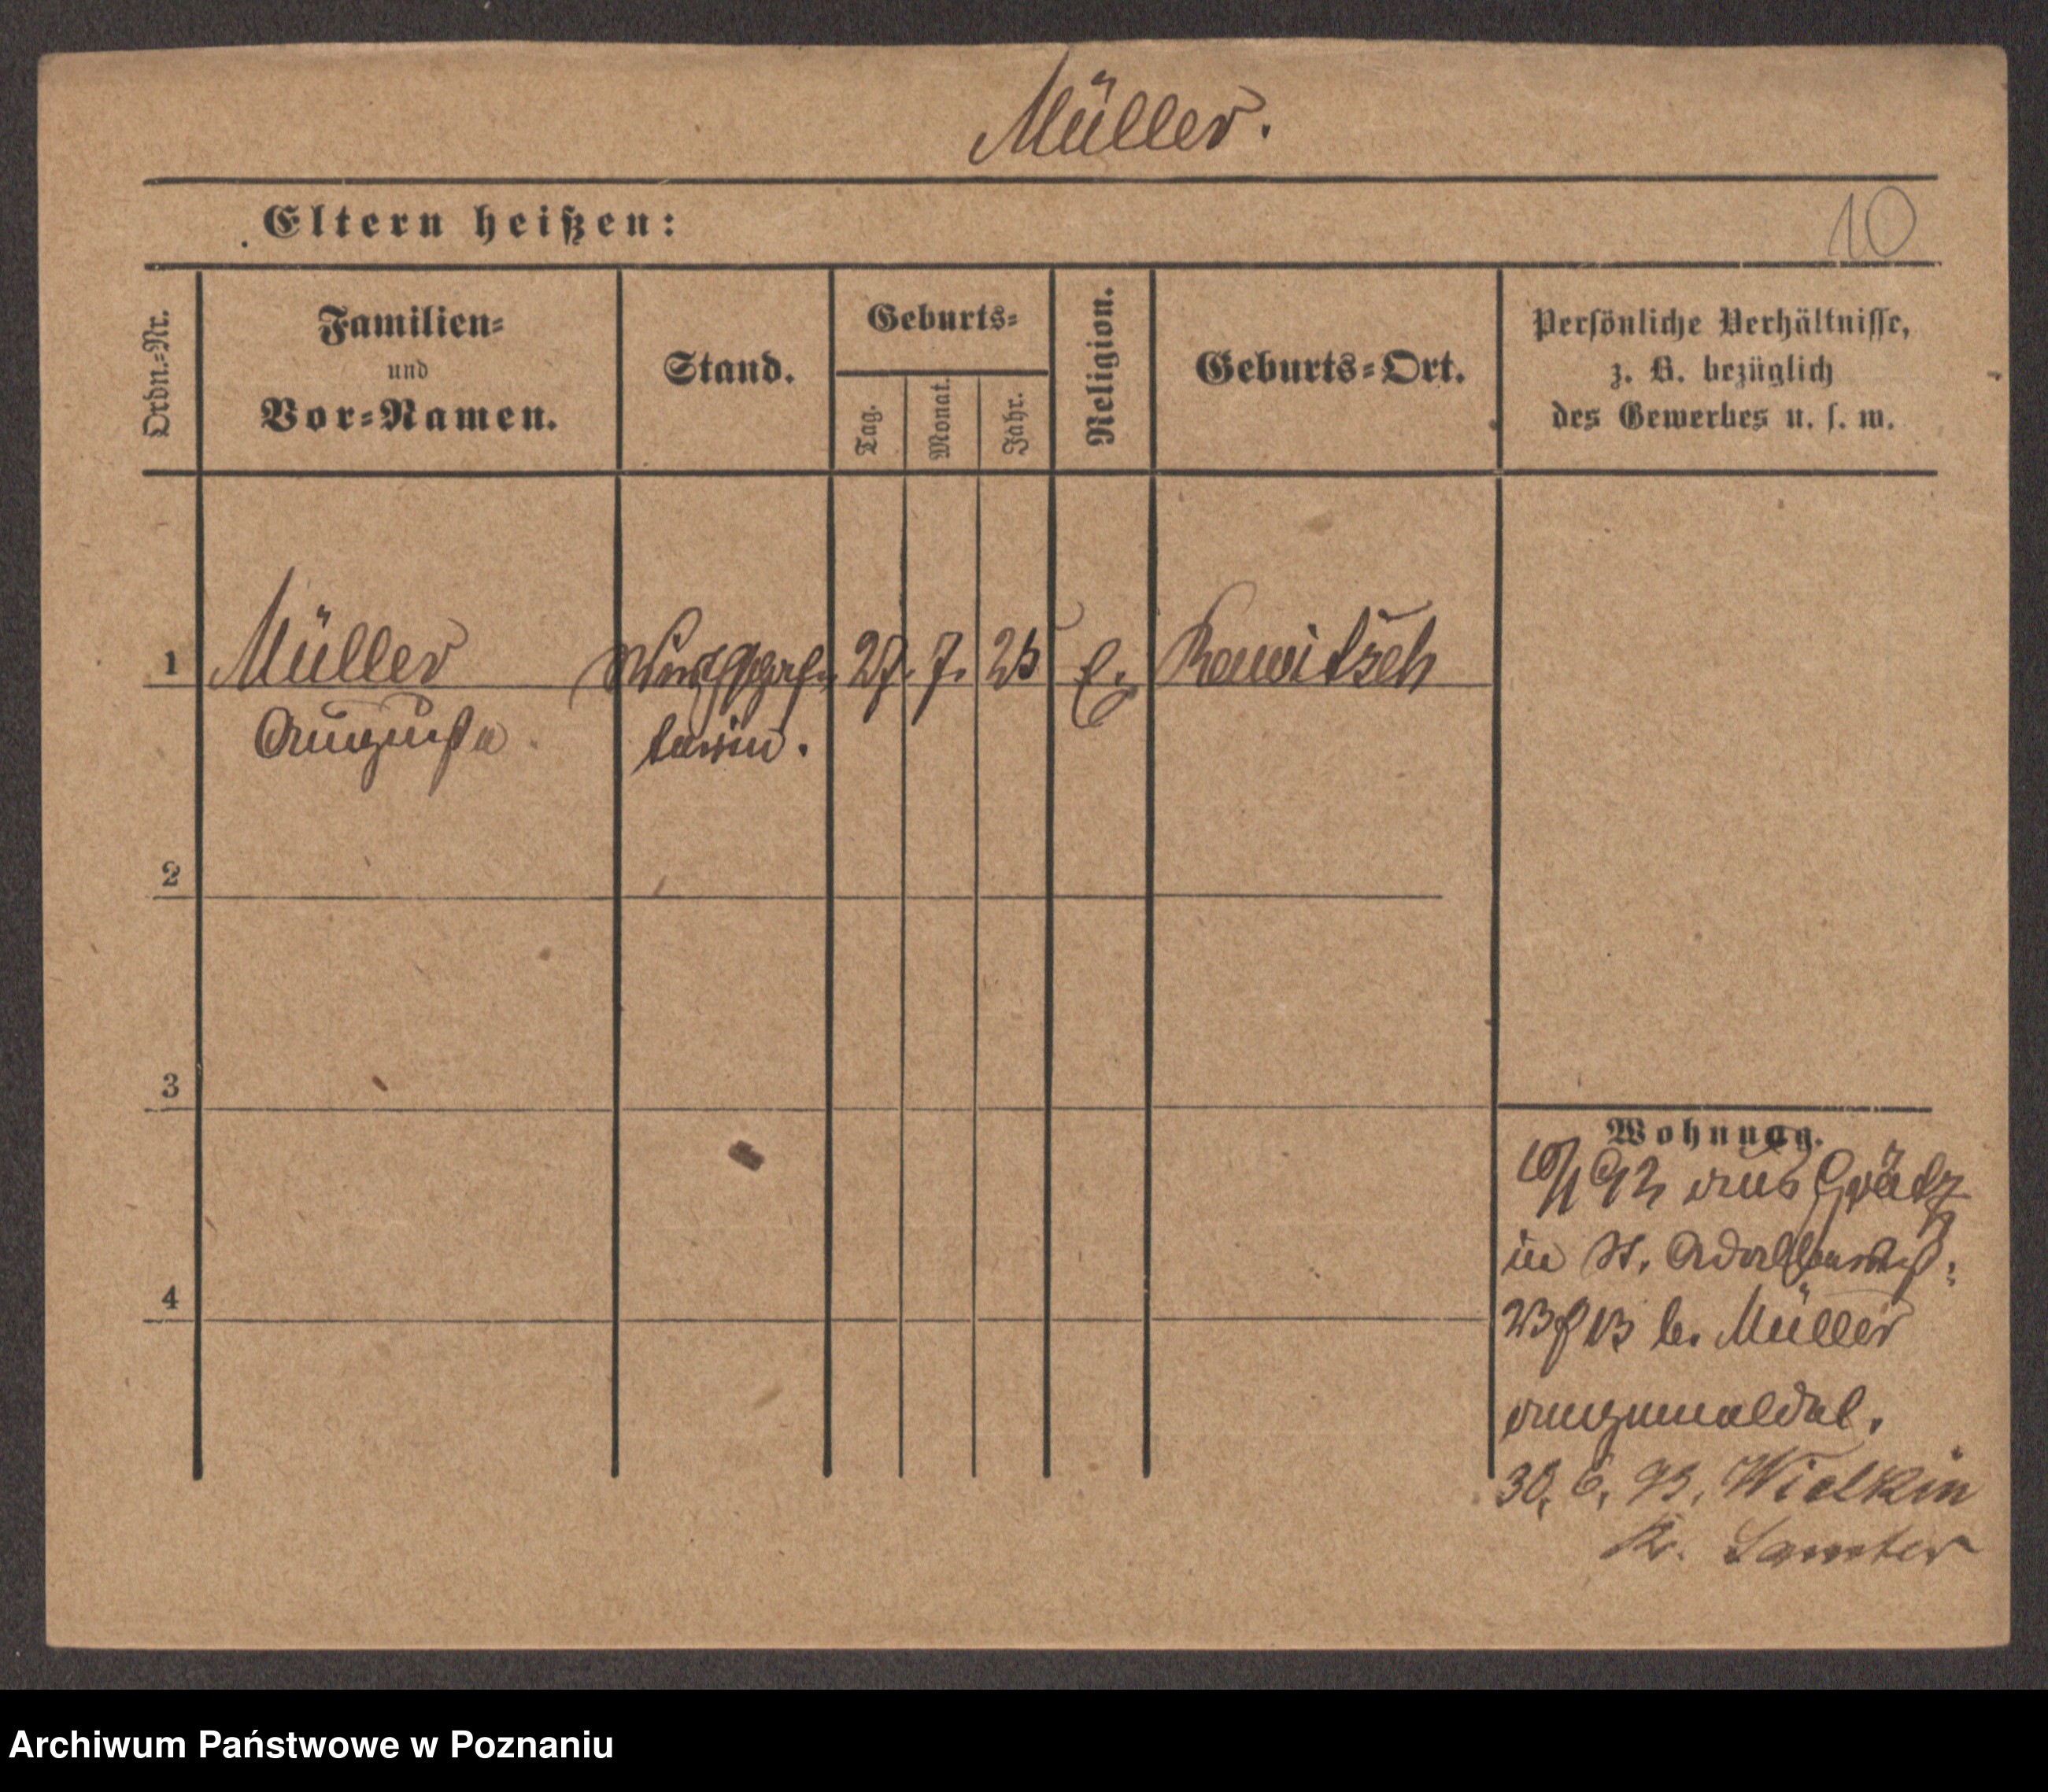 Müller.
Eltern heißen:
10
Ordn.=Nr.
Familien=
und
Vor=Namen.
Stand.
Geburts=
Tag.
Monat.
Jahr.
Religion.
Geburts=Ort.
Persönliche Verhältnisse,
z. B. bezüglich
des Gewerbes u. s. w.
1
Müller
Augusta
27. 7. 25
E.
Rawitsch
2
3
4
Wohnung.
10/1 92 aus Grätz
in St.
b. Müller
angemeldet.
30. 6. 93. Wielkin
Kr. Samter
Archiwum Państwowe w Poznaniu